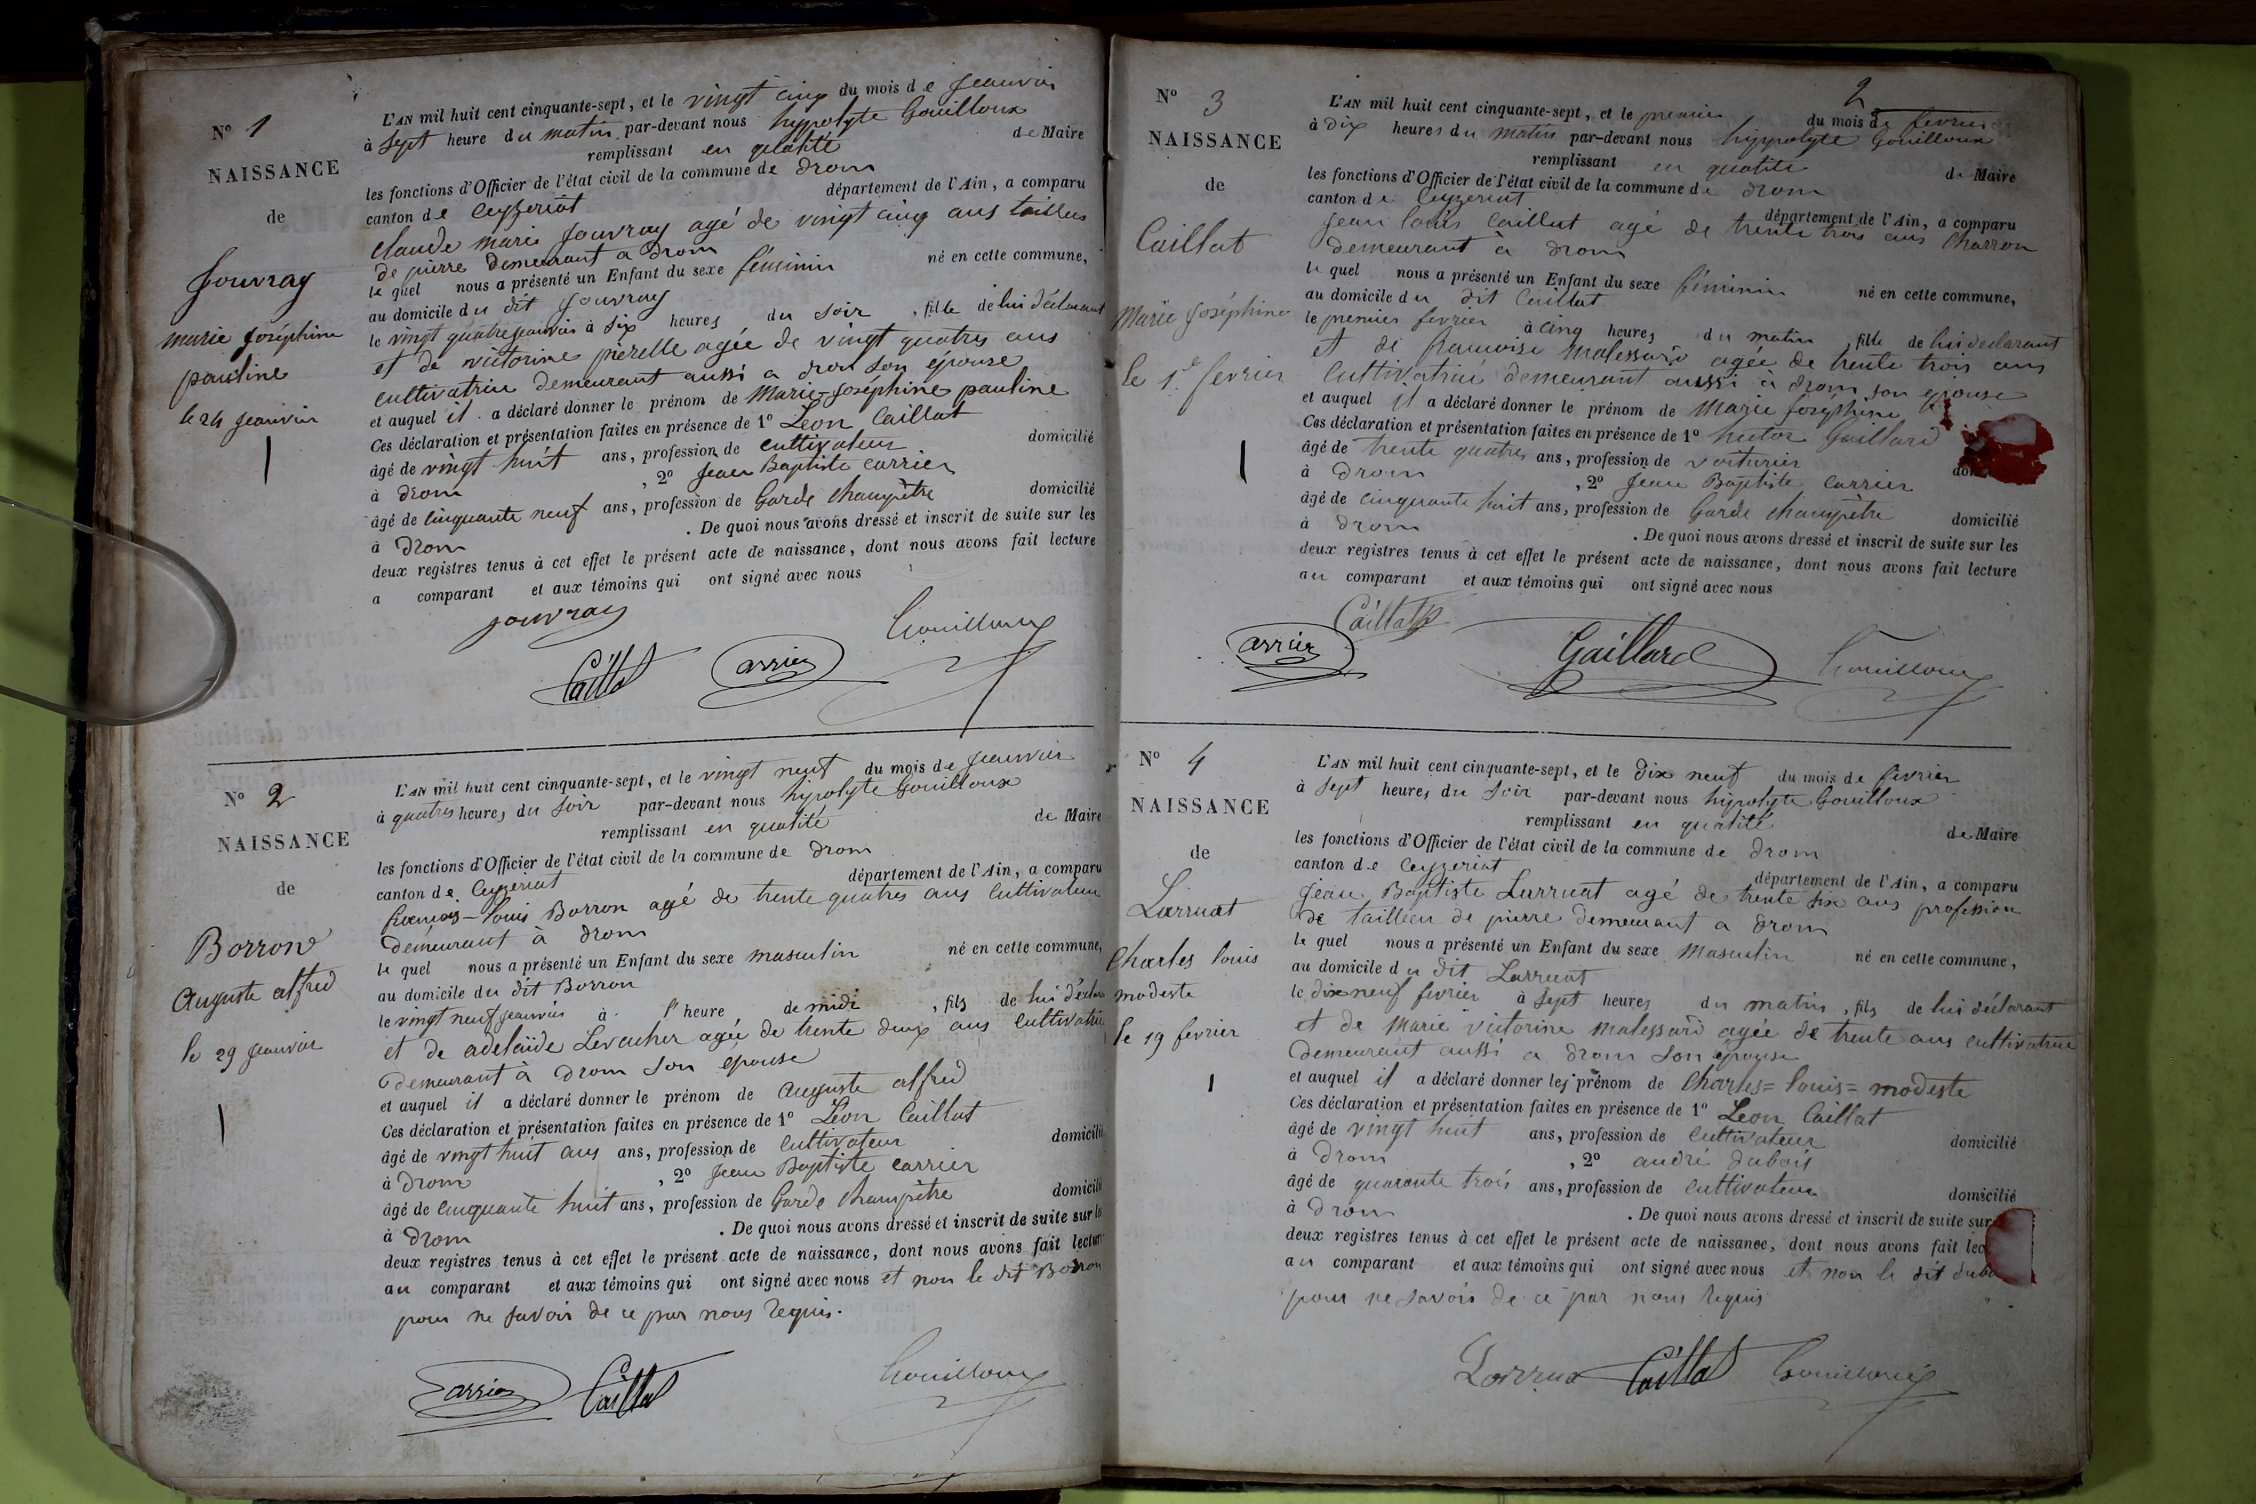 N° 1
NAISSANCE
de
Jouvray
marie joséphine
pauline
le 24 jeanvier
L'AN mil huit cent cinquante-sept, et le vingt cinq du mois de jeanvier
à sept heure du matin par-devant nous hypolyte Gouilloux
remplissant en qualité de Maire
les fonctions d'Officier de l'état civil de la commune de drom
canton de Ceyzeriat département de l'Ain, a comparu
claude marie jouvray agé de vingt cinq ans tailleur
de pierre demeurant a drom
le quel nous a présenté un Enfant du sexe féminin né en cette commune,
au domicile du dit jouvray
le vingt quatre jeanvier à six heures du soir, fille de lui déclarant
et de victorine pierelle agée de vingt quatres ans
cultivatrice demeurant aussi a drom son épouse
et auquel il a déclaré donner le prénom de Marie-Joséphine pauline
Ces déclaration et présentation faites en présence de 1° Léon Caillat
âgé de vingt huit ans, profession de cultivateur domicilié
à drom, 2° Jean Baptiste carrier
âgé de cinquante neuf ans, profession de Garde champêtre domicilié
à Drom . De quoi nous avons dressé et inscrit de suite sur les
deux registres tenus à cet effet le présent acte de naissance, dont nous avons fait lecture
a comparant et aux témoins qui ont signé avec nous
jouvray
Caillat carrier Gouilloux
N° 2
NAISSANCE
de
Borron
Auguste alfred
le 29 jeanvier
L'AN mil huit cent cinquante-sept, et le vingt neuf du mois de jeanvier
à quatres heures du soir par-devant nous hypolyte Gouilloux
remplissant en qualité de Maire
les fonctions d'Officier de l'état civil de la commune de drom
canton de Ceyzeriat département de l'Ain, a comparu
francois-louis Borron agé de trente quatres ans Cultivateur
demeurant à drom
le quel nous a présenté un Enfant du sexe masculin né en cette commune,
au domicile du dit Borron
le vingt neuf jeanvier à l'heure de midi, fils de lui déclarant
et de adelaïde Levacher agée de trente deux ans cultivatrice
demeurant à drom son épouse
et auquel il a déclaré donner le prénom de Auguste alfred
Ces déclaration et présentation faites en présence de 1° Léon Caillat
âgé de vingt huit ans ans, profession de Cultivateur domicilié
à Drom, 2° Jean Baptiste carrier
âgé de cinquante huit ans, profession de Garde champêtre domicilié
à Drom . De quoi nous avons dressé et inscrit de suite sur les
deux registres tenus à cet effet le présent acte de naissance, dont nous avons fait lecture
au comparant et aux témoins qui ont signé avec nous et non le dit Borron
pour ne savoir de ce par nous requis.
carrier Caillat Gouilloux
2
N° 3
NAISSANCE
de
Caillat
Marie Joséphine
le 1er fevrier
L'AN mil huit cent cinquante-sept, et le premier du mois de fevrier
à dix heures du matin par-devant nous hyppolyte Gouilloux
remplissant en qualité de Maire
les fonctions d'Officier de l'état civil de la commune de drom
canton de Ceyzeriat département de l'Ain, a comparu
jean louis Caillat agé de trente trois ans Charron
demeurant à drom
le quel nous a présenté un Enfant du sexe féminin né en cette commune,
au domicile du dit Caillat
le premier fevrier à cinq heures du matin, fille de lui declarant
et de francoise malessard agée de trente trois ans
Cultivatrice demeurant aussi à drom son épouse
et auquel il a déclaré donner le prénom de Marie Joséphine
Ces déclaration et présentation faites en présence de 1° hector Gaillard
âgé de trente quatres ans, profession de voiturier
à Drom, 2° Jean Baptiste carrier
âgé de cinquante huit ans, profession de Garde champêtre domicilié
à Drom . De quoi nous avons dressé et inscrit de suite sur les
deux registres tenus à cet effet le présent acte de naissance, dont nous avons fait lecture
au comparant et aux témoins qui ont signé avec nous
Caillat
carrier Gaillard Gouilloux
N° 4
NAISSANCE
de
Larruat
Charles louis
modeste
le 19 fevrier
L'AN mil huit cent cinquante-sept, et le dix neuf du mois de fevrier
à sept heures du soir par-devant nous hypolyte Gouilloux
remplissant en qualité de Maire
les fonctions d'Officier de l'état civil de la commune de drom
canton de Ceyzeriat département de l'Ain, a comparu
jean Baptiste Larruat agé de trente six ans profession
de tailleur de pierre demeurant a drom
le quel nous a présenté un Enfant du sexe Masculin né en cette commune,
au domicile du dit Larruat
le dix neuf fevrier à sept heures du matin, fils de lui déclarant
et de Marie victorine malessard agée de trente ans cultivatrice
demeurant aussi a drom son épouse
et auquel il a déclaré donner les prénom de Charles=louis=modeste
Ces déclaration et présentation faites en présence de 1° Leon Caillat
âgé de vingt huit ans, profession de Cultivateur domicilié
à Drom, 2° andré dubois
âgé de quarante trois ans, profession de Cultivateur domicilié
à Drom . De quoi nous avons dressé et inscrit de suite sur
deux registres tenus à cet effet le présent acte de naissance, dont nous avons fait
au comparant et aux témoins qui ont signé avec nous et non le dit
pour ne savoir de ce par nous requis
Caillat Gouilloux